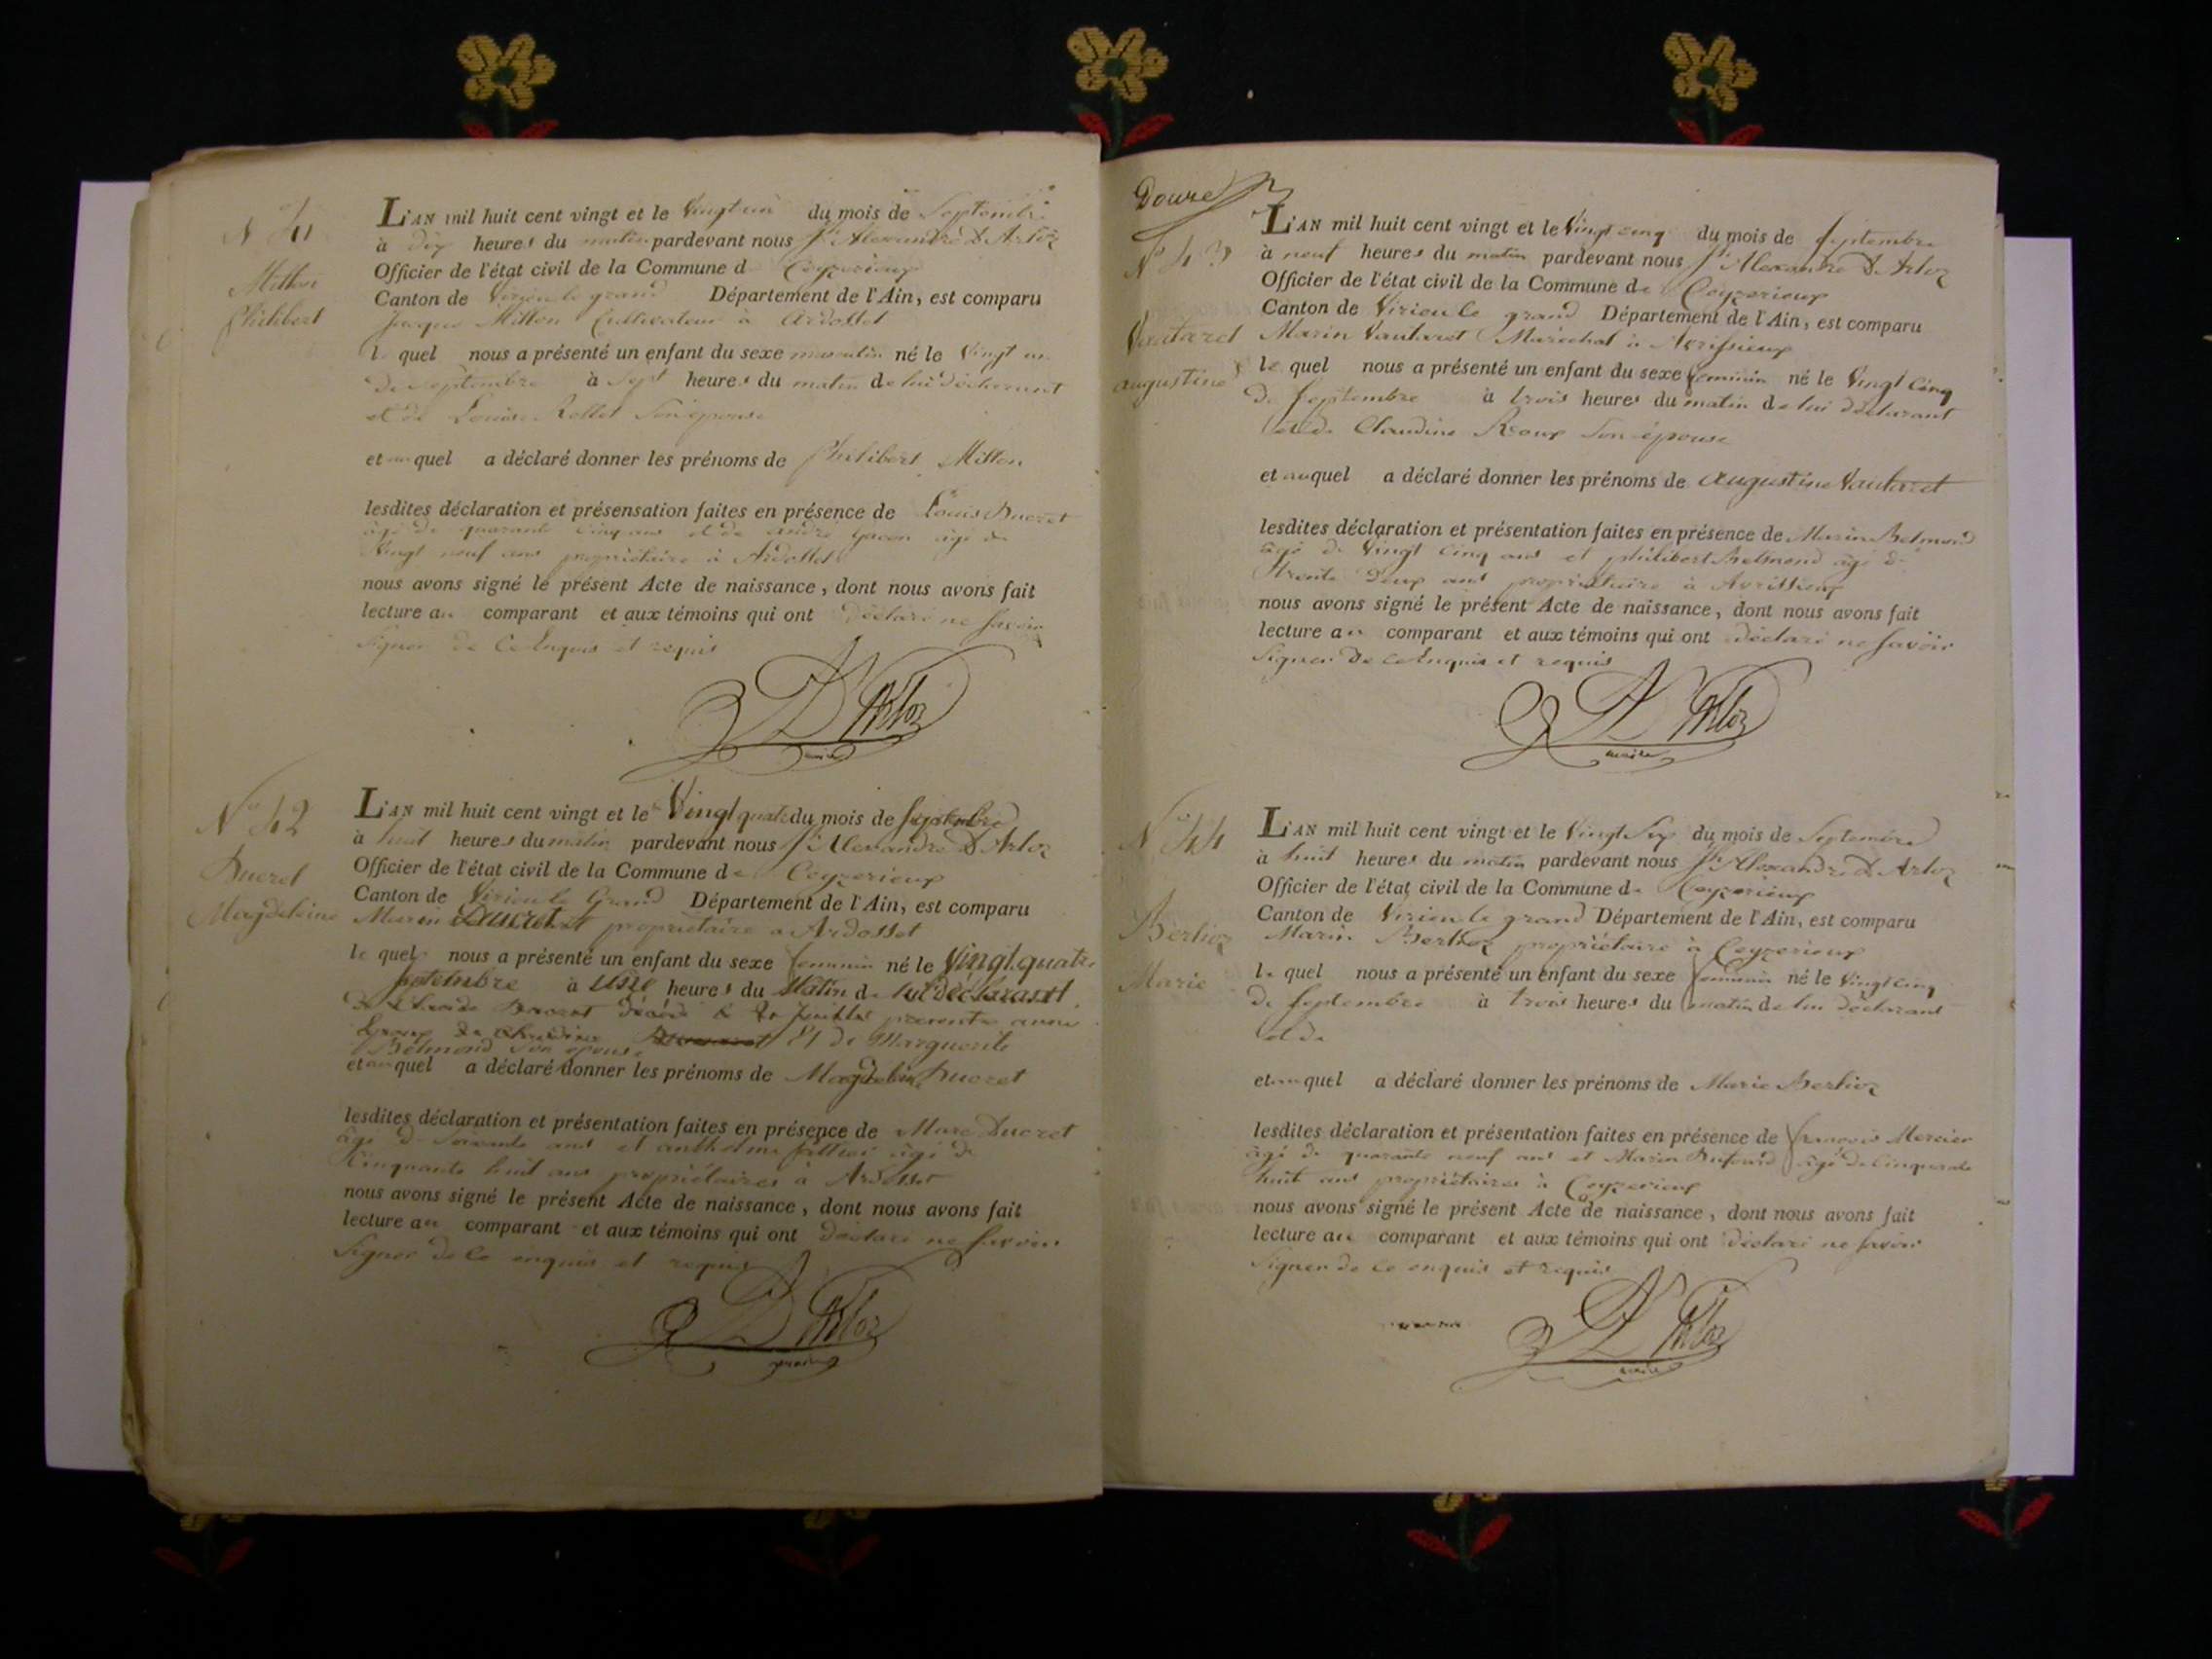 N° 41
Mitton
Philibert
L'AN mil huit cent vingt et le Vingt un du mois de Septembre
à dix heures du matin pardevant nous Jh Alexandre D'Arloz
Officier de l'état civil de la Commune d Ceyzerieux
Canton de Virieu le grand Département de l'Ain, est comparu
Jacques Mitton Cultivateur à Ardosset
le quel nous a présenté un enfant du sexe masculin né le Vingt un
de septembre à Sept heures du matin de lui déclarant
et de Louise Rollet Son épouse
et au quel a déclaré donner les prénoms de Philibert Mitton
lesdites déclaration et présensation faites en présence de Louis Ducret
âgé de quarante cinq ans et de andré gacon âgé de
Vingt neuf ans propriétaire à Ardosset
nous avons signé le présent Acte de naissance, dont nous avons fait
lecture au comparant et aux témoins qui ont déclaré ne savoir
signer de ce Enquis et requis
D'Arloz
maire
N° 42
Ducret
Magdeleine
L'AN mil huit cent vingt et le Vingt quatre du mois de septembre
à huit heures du matin pardevant nous Jh Alexandre D'Arloz
Officier de l'état civil de la Commune de Ceyzerieux
Canton de Virieu le Grand Département de l'Ain, est comparu
Marin Ducret propriétaire a Ardosset
le quel nous a présenté un enfant du sexe feminin né le Vingt quatre
septembre à Une heures du Matin de lui déclarant
de Ducret décédé le Juillet presente année
Epoux de Claudine Et de Marguerite
Belmond son epouse
et au quel a déclaré donner les prénoms de Magdeleine Ducret
lesdites déclaration et présentation faites en présence de Marc Ducret
âgé de Soixante ans et anthelme âgé de
Cinquante huit ans propriétaires à Ardosset
nous avons signé le présent Acte de naissance, dont nous avons fait
lecture au comparant et aux témoins qui ont déclaré ne savoir
Signer de ce enquis et requis
D'Arloz
maire
Douze
N° 43
Vautaret
augustine
L'AN mil huit cent vingt et le Vingt cinq du mois de septembre
à neuf heures du matin pardevant nous Jh Alexandre D'Arloz
Officier de l'état civil de la Commune de Ceyzerieux
Canton de Virieu le grand Département de l'Ain, est comparu
Marin Vautaret Maréchal à Avrissieux
le quel nous a présenté un enfant du sexe feminin né le Vingt Cinq
de septembre à trois heures du matin de lui déclarant
et de Claudine Roux Son épouse
et au quel a déclaré donner les prénoms de augustine Vautaret
lesdites déclaration et présentation faites en présence de Marin Belmond
âgé de Vingt Cinq ans et philibert Belmond âgé de
trente deux ans propriétaire à Avrissieux
nous avons signé le présent Acte de naissance, dont nous avons fait
lecture au comparant et aux témoins qui ont déclaré ne savoir
Signer de ce Enquis et requis
D'Arloz
maire
N° 44
Berlioz
Marie
L'AN mil huit cent vingt et le Vingt Six du mois de Septembre
à huit heures du matin pardevant nous Jh Alexandre D'Arloz
Officier de l'état civil de la Commune de Ceyzerieux
Canton de Virieu le grand Département de l'Ain, est comparu
Marin Berlioz propriétaire à Ceyzerieux
le quel nous a présenté un enfant du sexe feminin né le Vingt Cinq
de septembre à trois heures du matin de lui déclarant
et de
et au quel a déclaré donner les prénoms de Marie Berlioz
lesdites déclaration et présentation faites en présence de françois Mercier
âgé de quarante neuf ans et Marin Dufourd âgé de Cinquante
huit ans propriétaires à Ceyzerieux
nous avons signé le présent Acte de naissance, dont nous avons fait
lecture au comparant et aux témoins qui ont déclaré ne savoir
Signer de ce enquis et requis
D'Arloz
maire